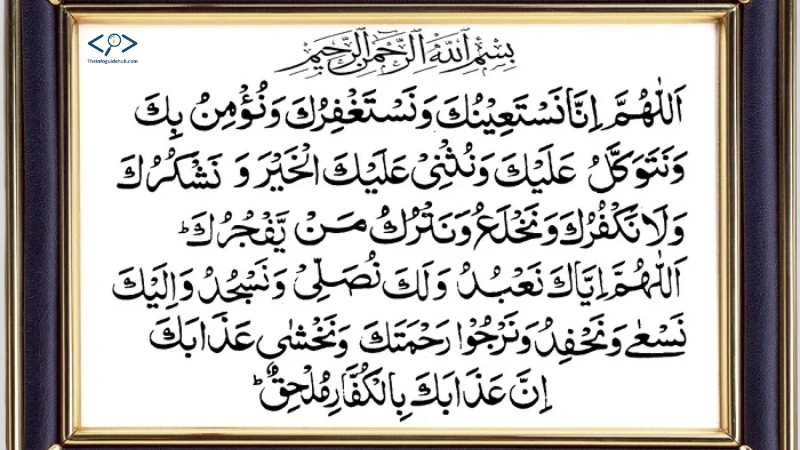 Theinfoguidehub.com
بِسْمِ اللّٰهِ الرَّحْمٰنِ الرَّحِيْمِ
اَللّٰهُمَّ اِنَّا نَسْتَعِيْنُكَ وَنَسْتَغْفِرُكَ وَنُؤْمِنُ بِكَ
وَنَتَوَكَّلُ عَلَيْكَ وَنُثْنِىْ عَلَيْكَ الْخَيْرَ وَ نَشْكُرُكَ
وَلَا نَكْفُرُكَ وَنَخْلَعُ وَنَتْرُكُ مَنْ يَّفْجُرُكَ ؕ
اَللّٰهُمَّ اِيَّاكَ نَعْبُدُ وَلَكَ نُصَلِّىْ وَنَسْجُدُ وَاِلَيْكَ
نَسْعٰى وَنَحْفِدُ وَنَرْجُوْا رَحْمَتَكَ وَنَخْشٰى عَذَابَكَ
اِنَّ عَذَابَكَ بِالْكُفَّارِ مُلْحِقٌ ؕ